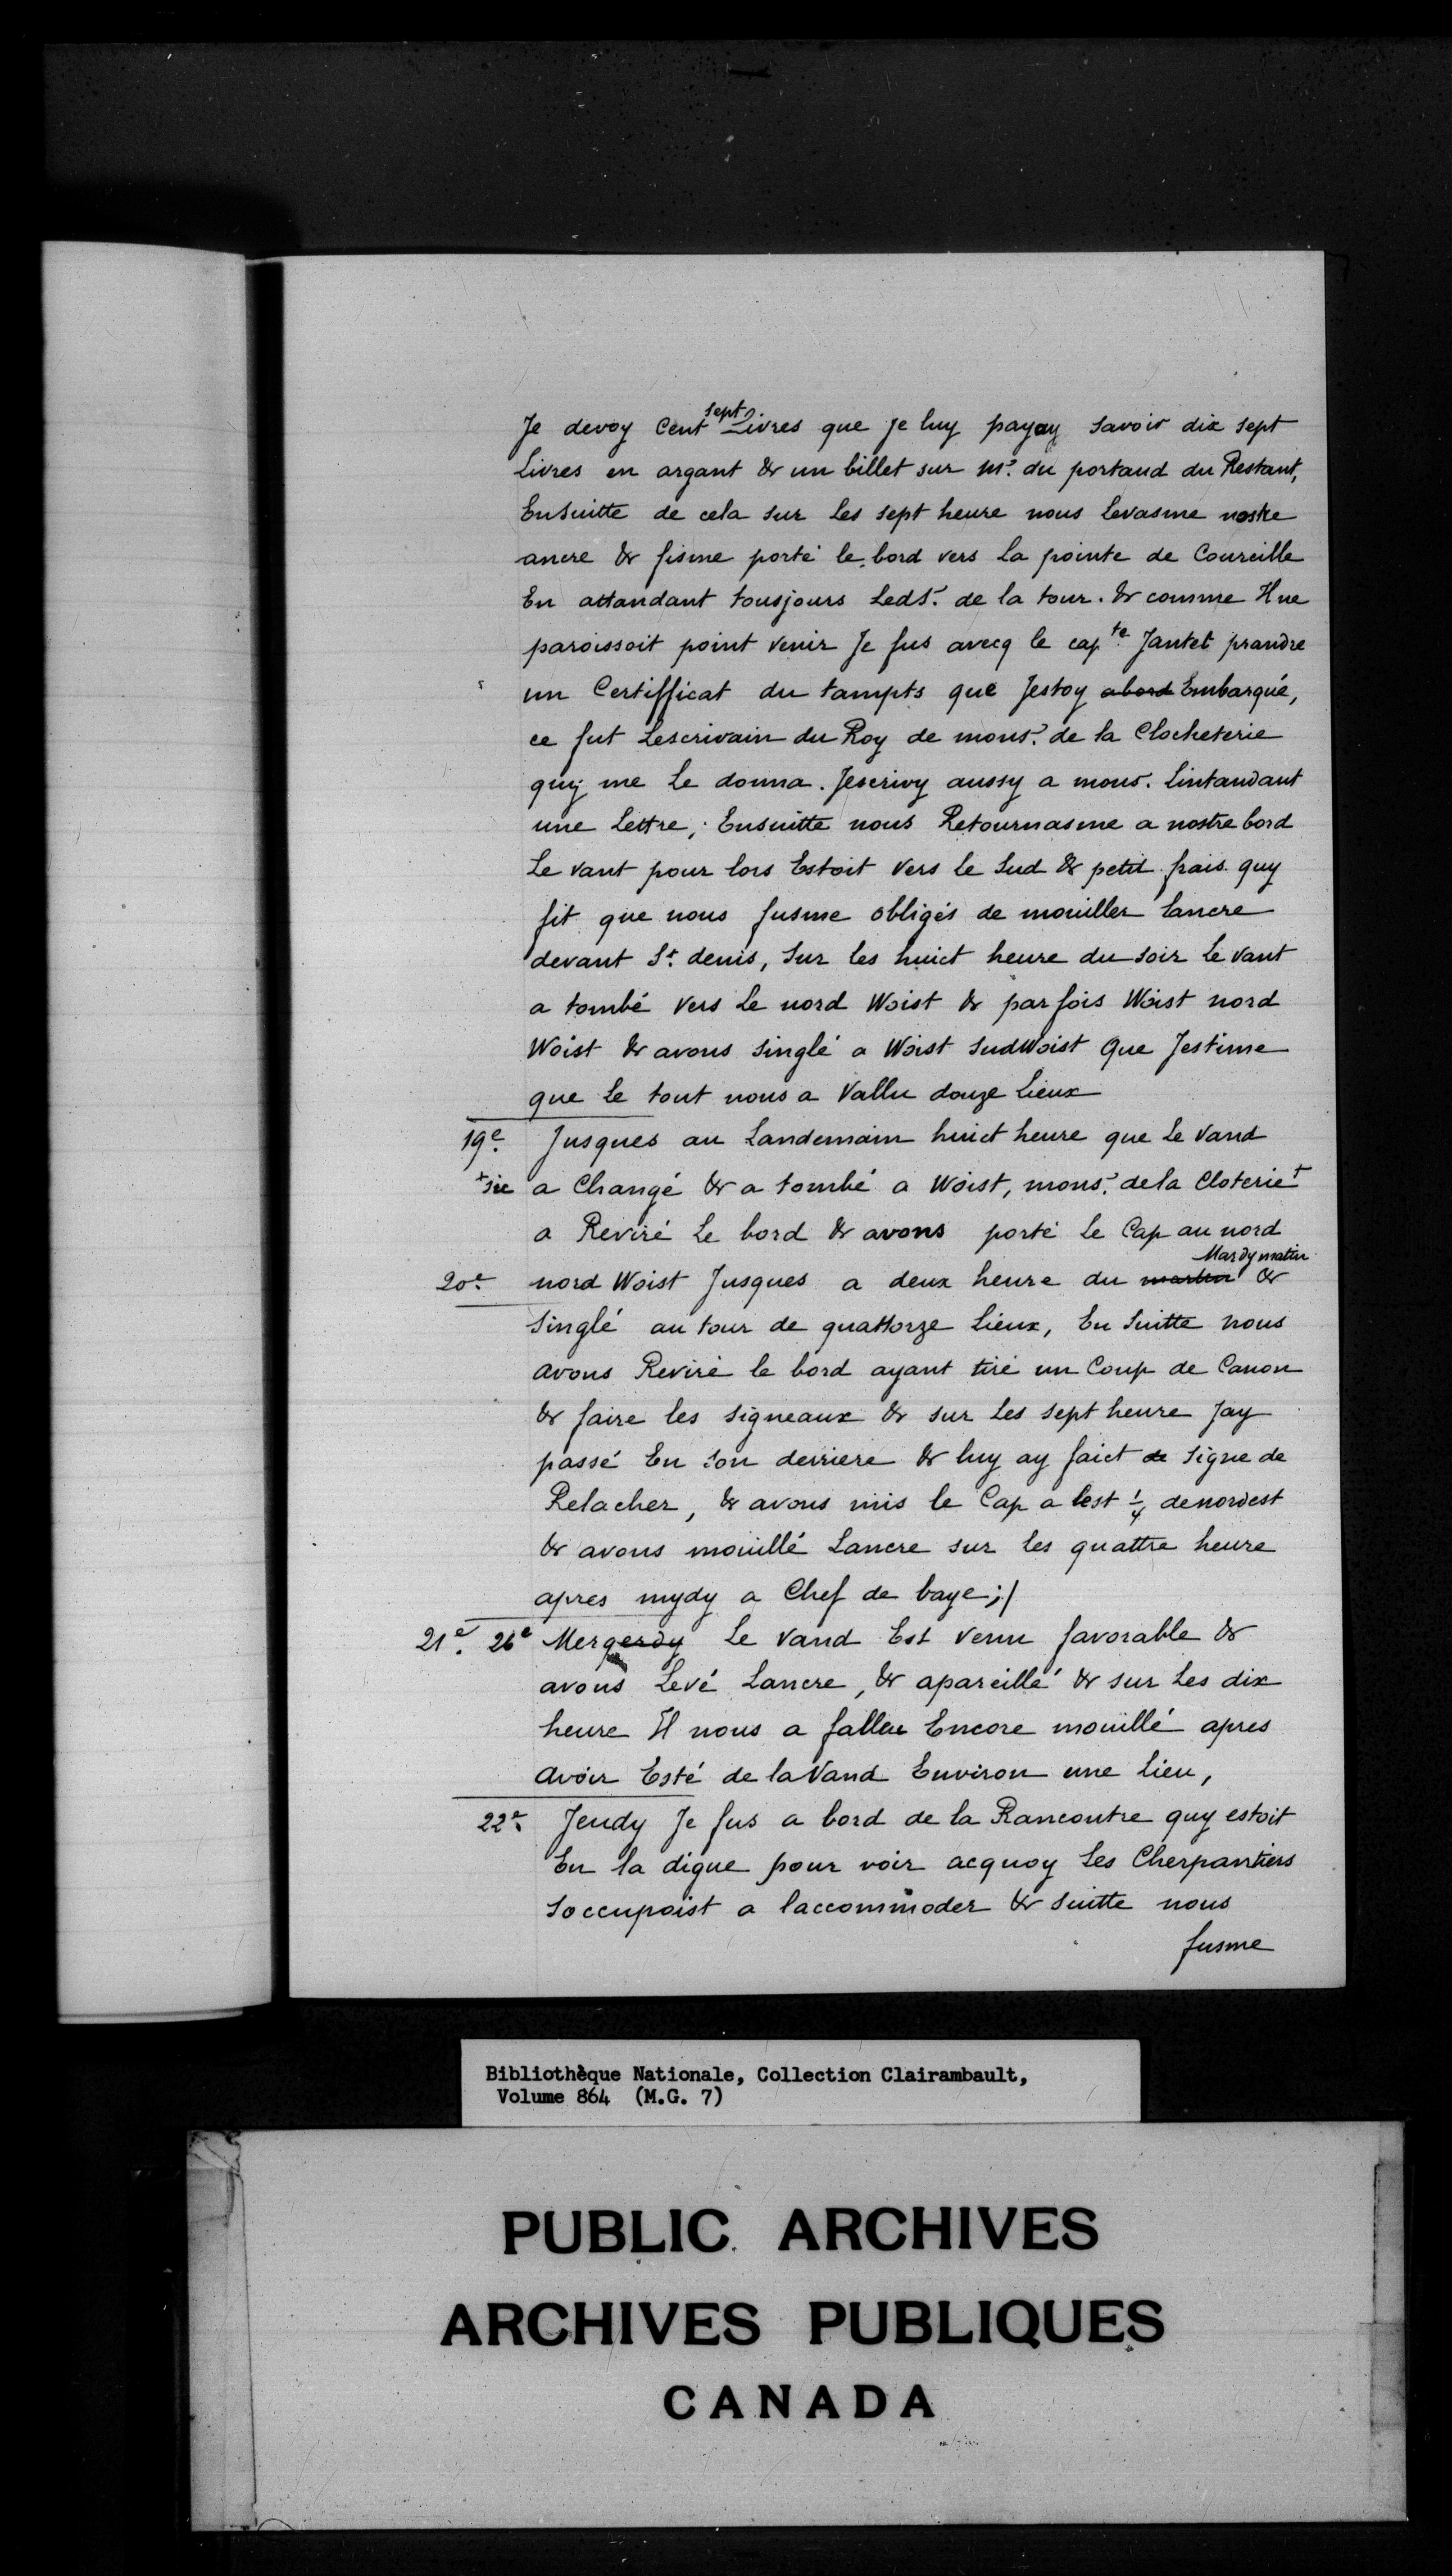 Je devoy Cent sept Livres que je luy payay savoir dix sept
Livres en argant & un billet sur Mr. du portaud du Restant,
Ensuitte de cela sur les sept heure nous levasme nostre
ancre & fisme porté le bord vers la pointe de Coureille
En attandant tousjours Led Sr. de la tour. & comme Il ne
paroissoit point venir Je fus avecq le capte Jantet prandre
un Certifficat du tampts que Jestoy abord Embarqué,
ce fut Lescrivain du Roy de monsr. de la Clocheterie
quy me Le donna. Jescrivy aussy a monsr. Lintandant
une Lettre; Ensuitte nous Retournasme a nostre bord
Le vant pour lors Estoit vers le Sud & petit frais quy
fit que nous fusme obligés de mouiller lancre
devant St. denis, sur les huict heure du soir Le vant
a tombé vers Le nord Woist & par fois Woist nord
Woist & avons singlé a Woist SudWoist Que Jestime
que Le tout nous a Vallu douze Lieux
19e. Jusques au Landemain huict heure que Le vand
+sic a Changé & a tombé a Woist, monsr. de la Cloterie+
a Reviré Le bord & avons porté Le Cap au nord
Mardy matin
20e. nord Woist Jusques a deux heure du martin &
singlé au tour de quattorze Lieux, En Suitte nous
avons Reviré le bord ayant tiré un Coup de Canon
& faire les signeaux & sur Les sept heure Jay
passé En son derriere & luy ay faict de signe de
Relacher, & avons mis le Cap a lest 1/4 de nordest
& avons mouillé Lancre sur les quattre heure
apres mydy a Chef de baye;/
21e. 26e Mergerdy Le vand Est venu favorable &
avons Levé Lancre, & apareillé & sur Les dix
heure Il nous a fallu Encore mouillé apres
avoir Esté de la Vand Environ une Lieu,
22e. Jeudy Je fus a bord de la Rancontre quy estoit
En la digue pour voir acquoy Les Cherpantiers
soccupoist a laccommoder & suitte nous
fusme
Bibliothèque Nationale, Collection Clairambault,
Volume 864 (M.G. 7)
PUBLIC ARCHIVES
ARCHIVES PUBLIQUES
CANADA